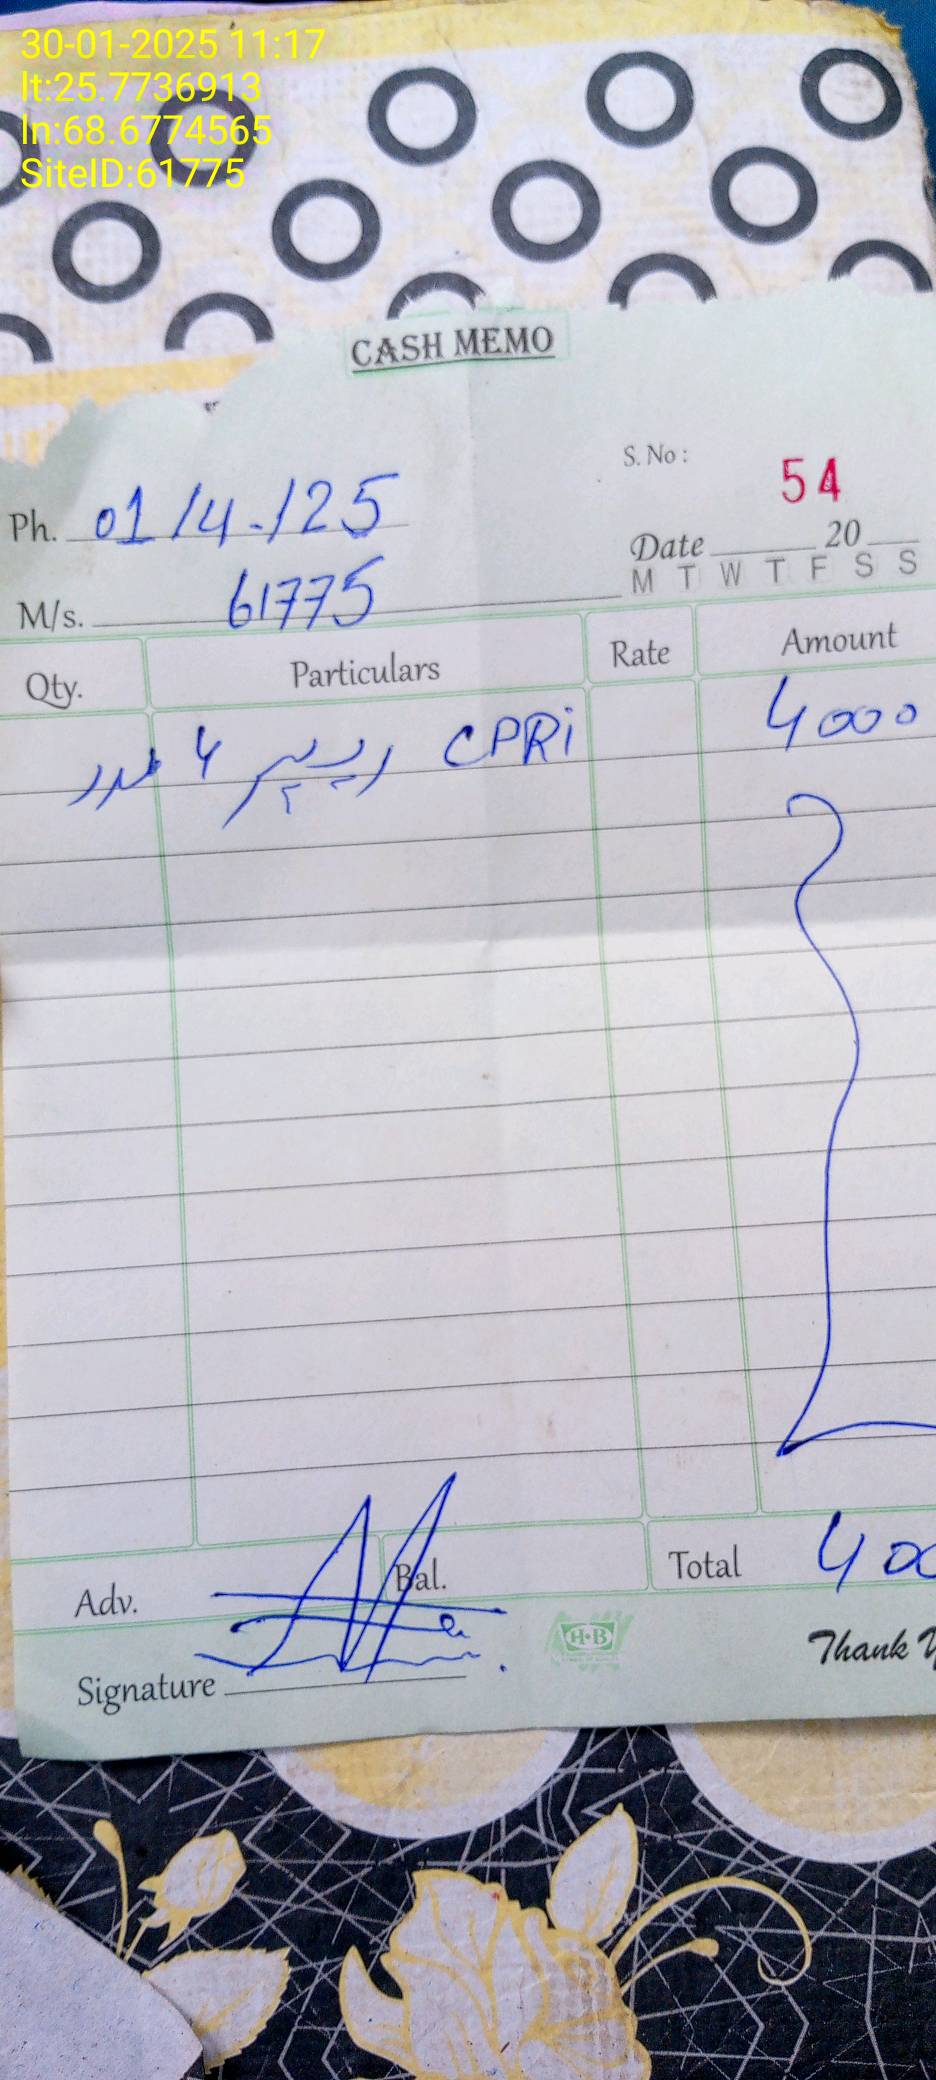 30-01-2025 11:17
lt:25.7736913
ln:68.6774565
SiteID:61775
CASH MEMO
S. No :
54
Ph. 01/4-/25
Date 20
M T W T F S S
M/s. 61775
Qty. Particulars Rate Amount
CPRi ریپیر 4 عدد 4000
Adv. Bal. Total 400
H·B
Signature
Thank Y